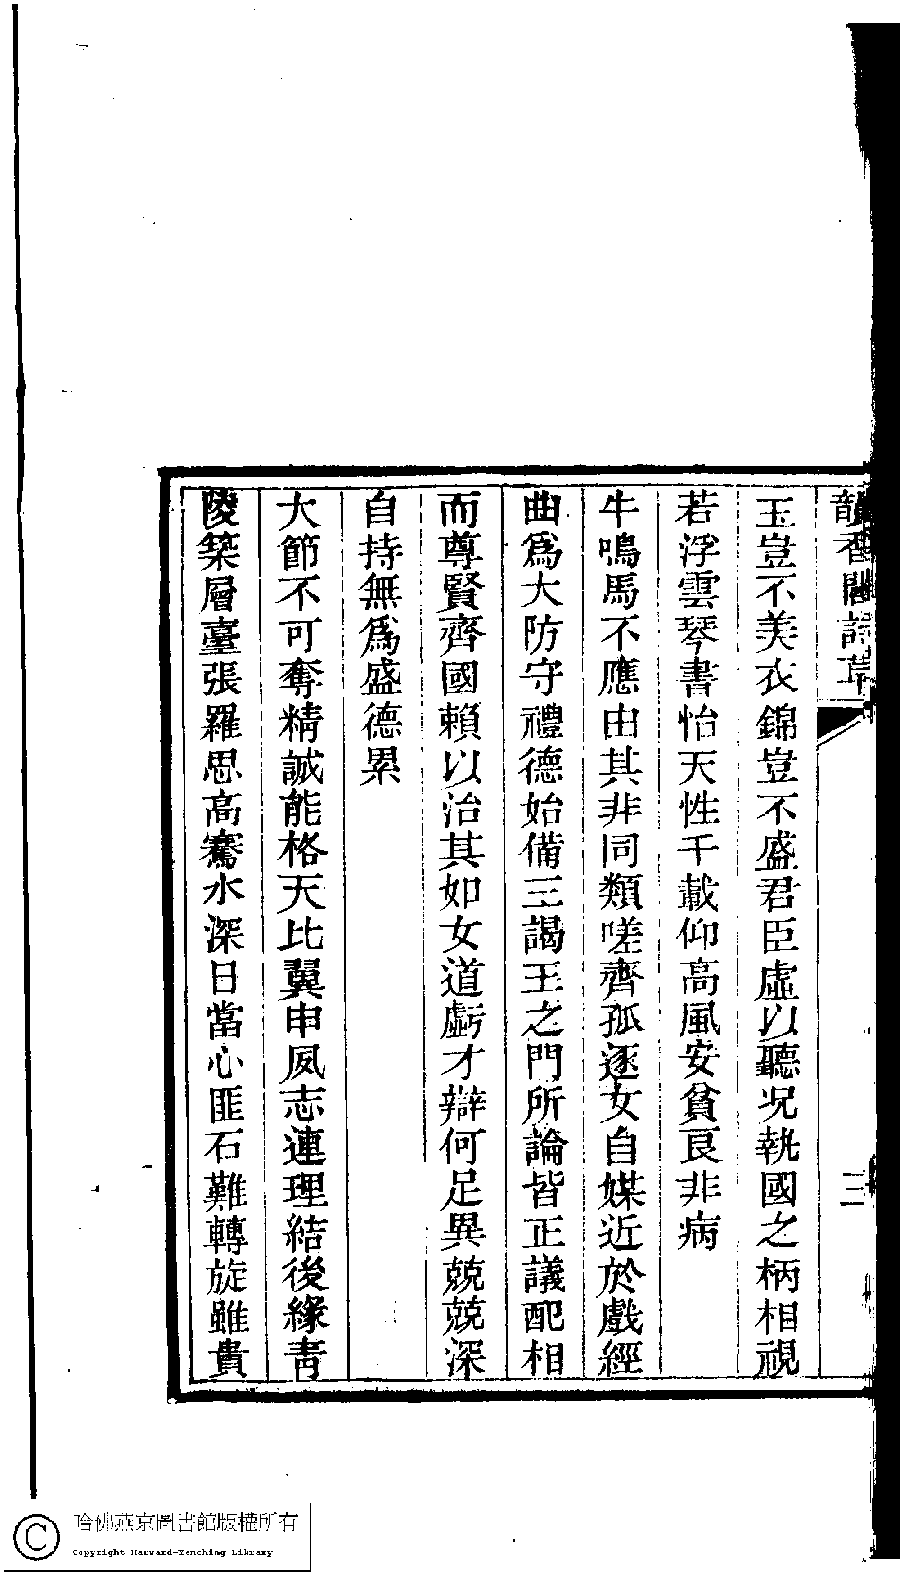 韻香閣詩草
三
玉豈不美衣錦豈不盛君臣虛以聽况執國之柄相視
若浮雲琴書怡天性千載仰高風安貧良非病
牛鳴馬不應由其非同類嗟齊孤逐女自媒近於戲經
曲爲大防守禮德始備三謁王之門所論皆正議配相
而尊賢齊國賴以治其如女道虧才辯何足異兢兢深
自持無爲盛德累
大節不可奪精誠能格天比翼申夙志連理結後緣靑
陵築層臺張羅思高騫水深日當心匪石難轉旋雖貴
哈佛燕京圖書館版權所有
Copyright Harvard-Yenching Library